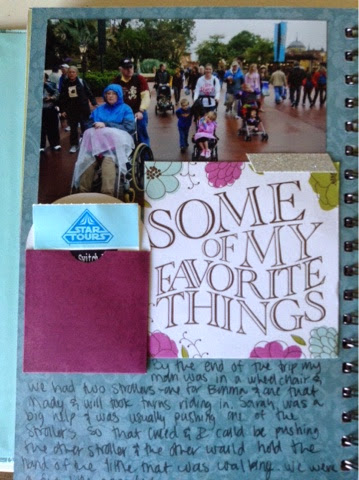 STAR
TOURS
SOME
OF MY
FAVORITE
THINGS
By the end of the trip my
mom was in a wheelchair &
we had two strollers - one for Emma & one that
Mady & Will took turns riding in. Sarah was a
big help & was usually pushing one of the
strollers so that Creed & I could be pushing
the other stroller & the other would hold the
hand of the little that was walking. We were